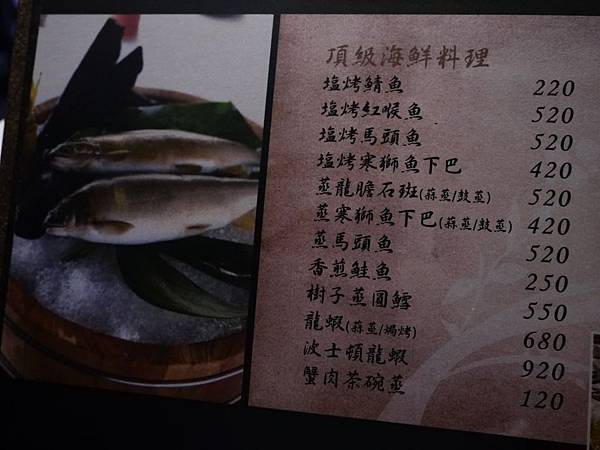 頂級海鮮料理
塩烤鯖魚 220
塩烤紅喉魚 520
塩烤馬頭魚 520
塩烤寒獅魚下巴 420
蒸龍膽石斑(蒜蒸/鼓蒸) 520
蒸寒獅魚下巴(蒜蒸/鼓蒸) 420
蒸馬頭魚 520
香煎鮭魚 250
樹子蒸圓鱈 550
龍蝦(蒜蒸/焗烤) 680
波士頓龍蝦 920
蟹肉茶碗蒸 120